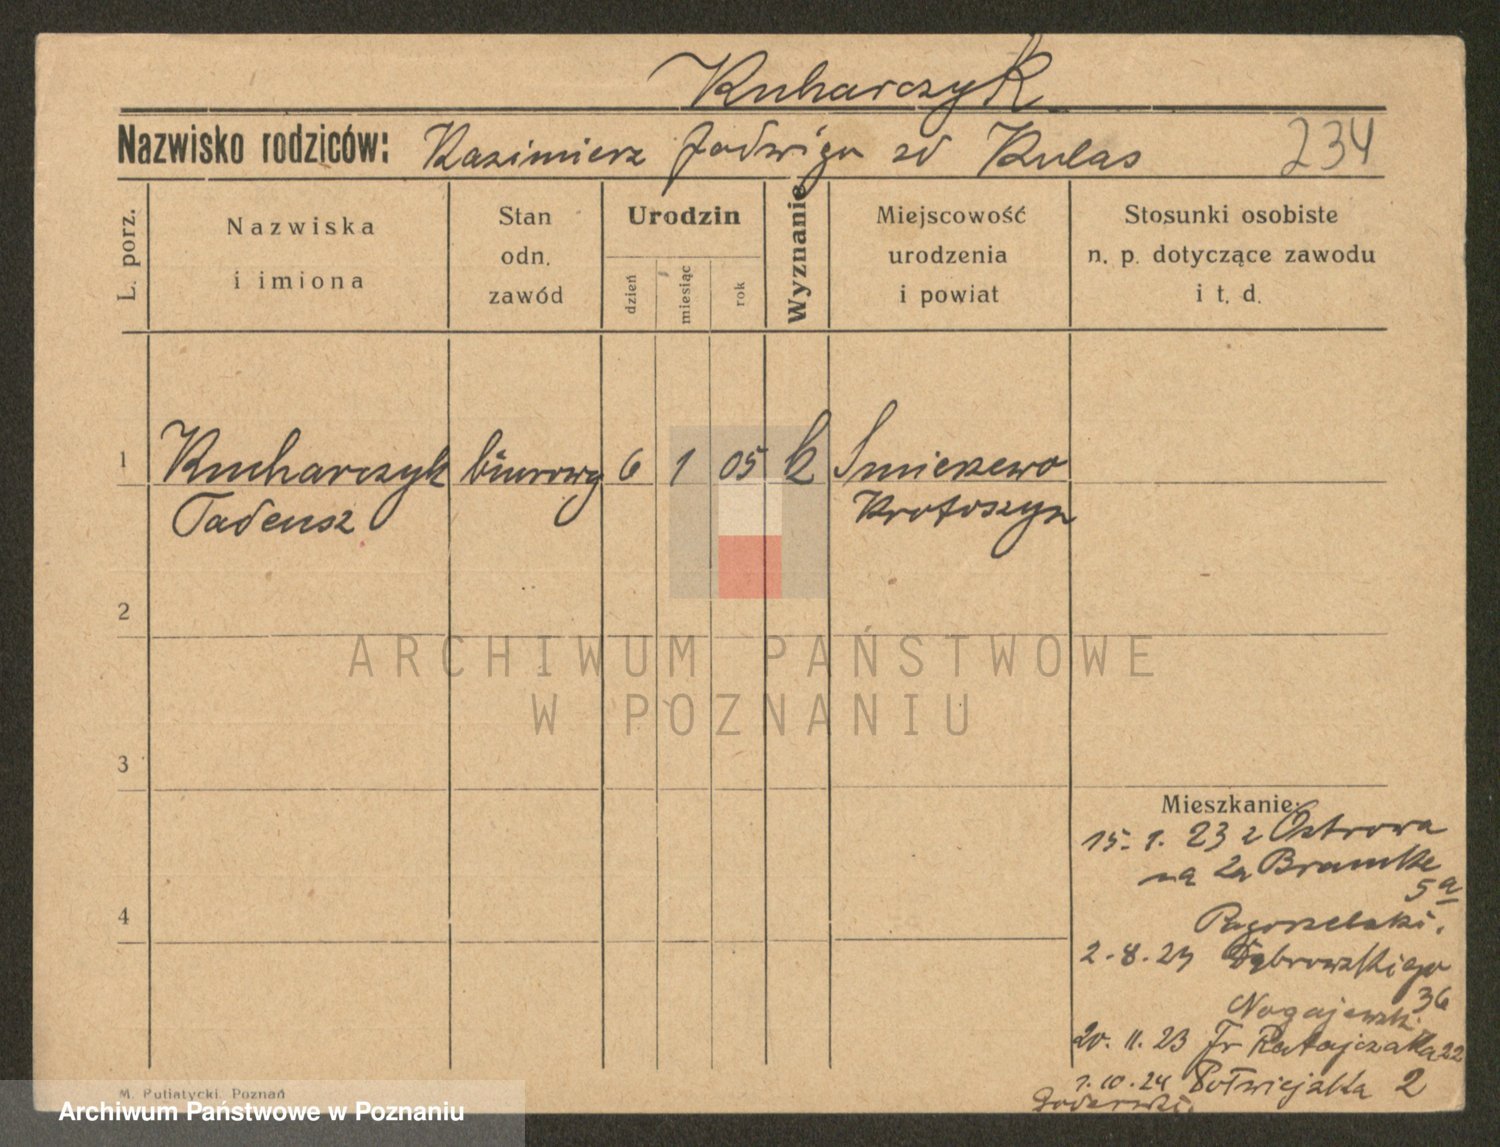 Kuharczyk
Nazwisko rodziców: Kazimierz Jadwiga zd Kulas 234
L. porz.
Nazwiska
i imiona
Stan
odn.
zawód
Urodzin
dzień
miesiąc
rok
Wyznanie
Miejscowość
urodzenia
i powiat
Stosunki osobiste
n. p. dotyczące zawodu
i t. d.
1 Kucharczyk biurowy 6 1 05 k Smieszewo
Tadeusz Krotoszyn
2
ARCHIWUM PAŃSTWOWE
W POZNANIU
3
Mieszkanie:
15. 1. 23 z Ostrowa
na Za Bramke
5a
4
Pogorzelski.
2.8.23 Dąbrowskiego
36
Nogajewski
20. 11. 23 Fr Ratajczaka 22
1. 10. 24 Półwiejska 2
M. Putiatycki, Poznań
Archiwum Państwowe w Poznaniu